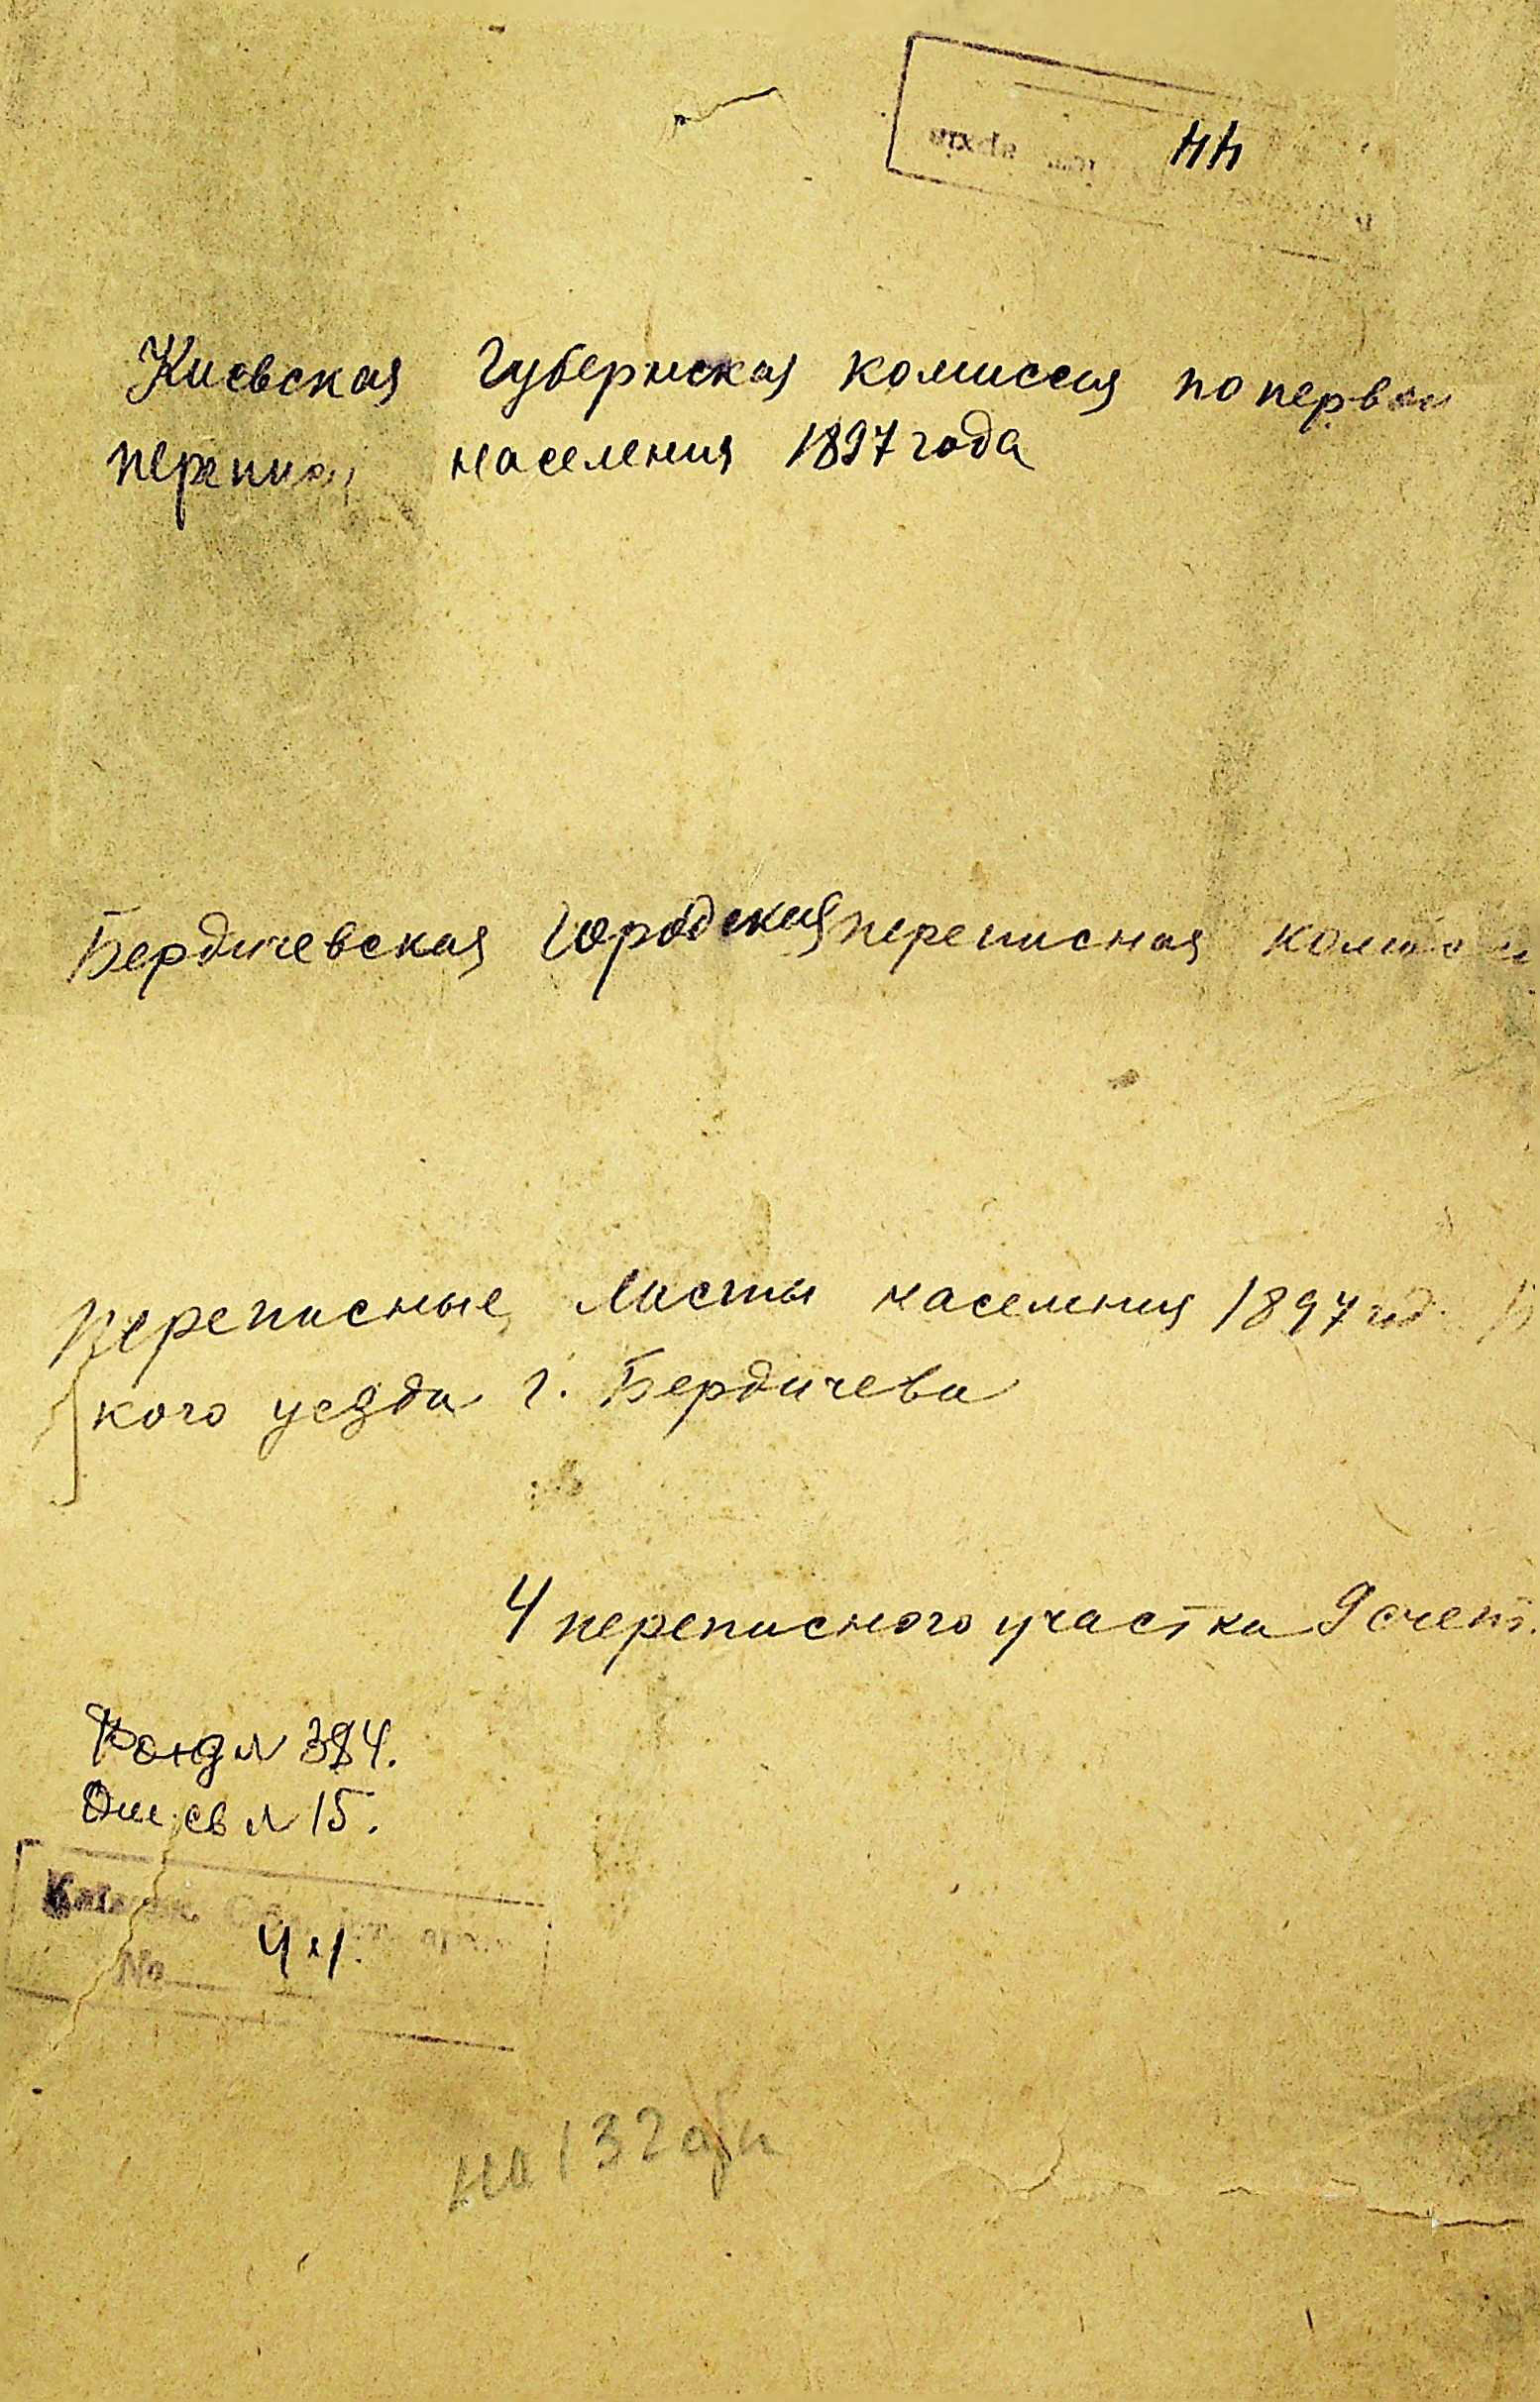 44
Киевская Губернская комиссия по первой
переписи населения 1897 года
Бердичевская городская переписная комисси
Переписные листы населения 1897 год.
кого уезда г. Бердичева
4 переписного участка 9 счетн.
Фонд № 384.
Опись № 15.
№
на 132